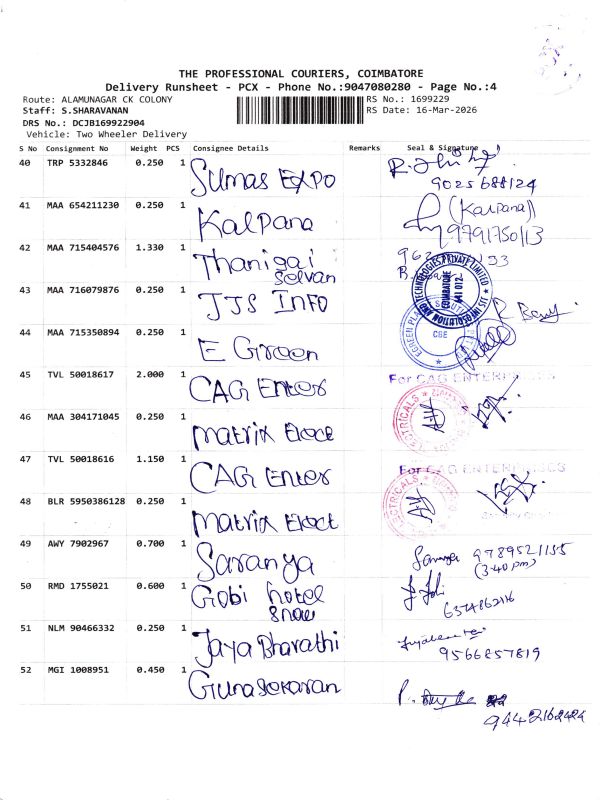 THE PROFESSIONAL COURIERS, COIMBATORE
Delivery Runsheet - PCX - Phone No.:9047080280 - Page No.:4
Route: ALAMUNAGAR CK COLONY
RS No.: 1699229
Staff: S.SHARAVANAN
RS Date: 16-Mar-2026
DRS No.: DCJB169922904
Vehicle: Two Wheeler Delivery
S No Consignment No Weight PCS Consignee Details Remarks Seal & Signature
40 TRP 5332846 0.250 1 Sumas EXPO
9025688124
41 MAA 654211230 0.250 1 Kalpana (Kalpana)
9791750113
42 MAA 715404576 1.330 1 Thanigai
Selvan
43 MAA 716079876 0.250 1 JJS INFO
44 MAA 715350894 0.250 1 E Green
45 TVL 50018617 2.000 1 CAG Enter For CAG ENTERPRISES
46 MAA 304171045 0.250 1 Matrix Elect
47 TVL 50018616 1.150 1 CAG Enter For CAG ENTERPRISES
48 BLR 5950386128 0.250 1 Matrix Elect
49 AWY 7902967 0.700 1 Saranya Saranya 9789521155
(3.40 pm)
50 RMD 1755021 0.600 1 Gobi hotel
6374862116
51 NLM 90466332 0.250 1 Jaya Bharathi
9566857819
52 MGI 1008951 0.450 1 Gunasekaran
9442162424